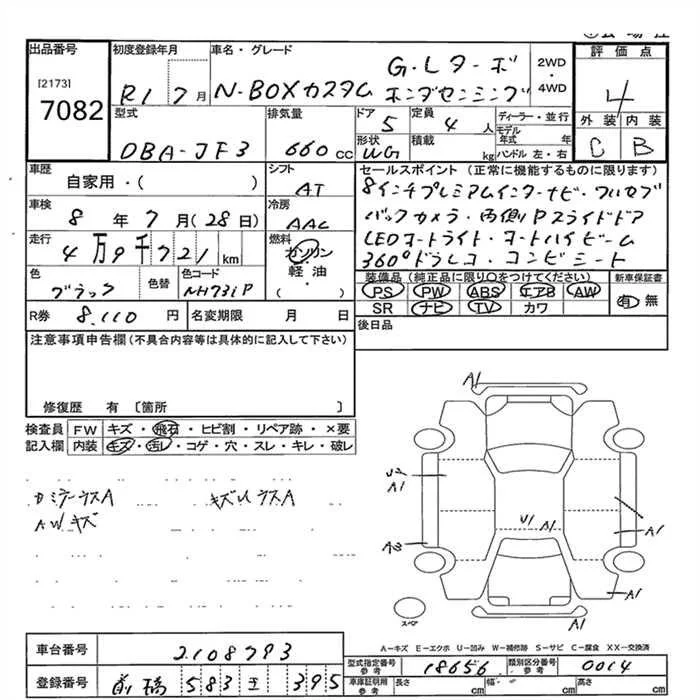 出品番号
[2173]
7082
初度登録年月
R1 7月
車名・グレード
N-BOXカスタム
G・Lターボ
ホンダセンシング
2WD
・
4WD
評価点
4
外装 内装
C B
型式
DBA-JF3
排気量
660 cc
ドア
5
定員
4 人
ディーラー・並行
モデル年式 年
形状
WG
積載
kg
ハンドル 左・右
車歴
自家用・( )
シフト
AT
車検
8 年 7 月 (28 日)
冷房
AAC
走行
4万9千721 km
燃料
ガソリン
軽・油
( )
色
ブラック
色替
色コード
NH731P
R券 8,110 円
名変期限 月 日
セールスポイント(正常に機能するものに限ります)
8インチプレミアムインターナビ・フルセグ
バックカメラ・両側Pスライドドア
LEDオートライト・オートハイビーム
360°ドラレコ・コンビシート
装備品(純正品に限り〇をつけてください)
PS PW ABS エアB AW
SR ナビ TV カワ
新車保証書
有 無
後日品
注意事項申告欄(不具合内容等は具体的に記入して下さい)
修復歴 有 〔箇所 〕
検査員記入欄
FW キズ・飛石・ヒビ割・リペア跡・×要
内装 キズ・汚レ・コゲ・穴・スレ・キレ・破レ
AWキズ
A1
A1
U1 A1
A1
A1
A1
スペア
A-キズ E-エクボ U-凹み W-補修跡 S-サビ C-腐食 XX-交換済
車台番号
2108793
登録番号
前橋 583 395
型式指定番号
参考
18656
類別区分番号
参考
0014
車庫証明用
参考
長さ cm
幅 cm
高さ cm